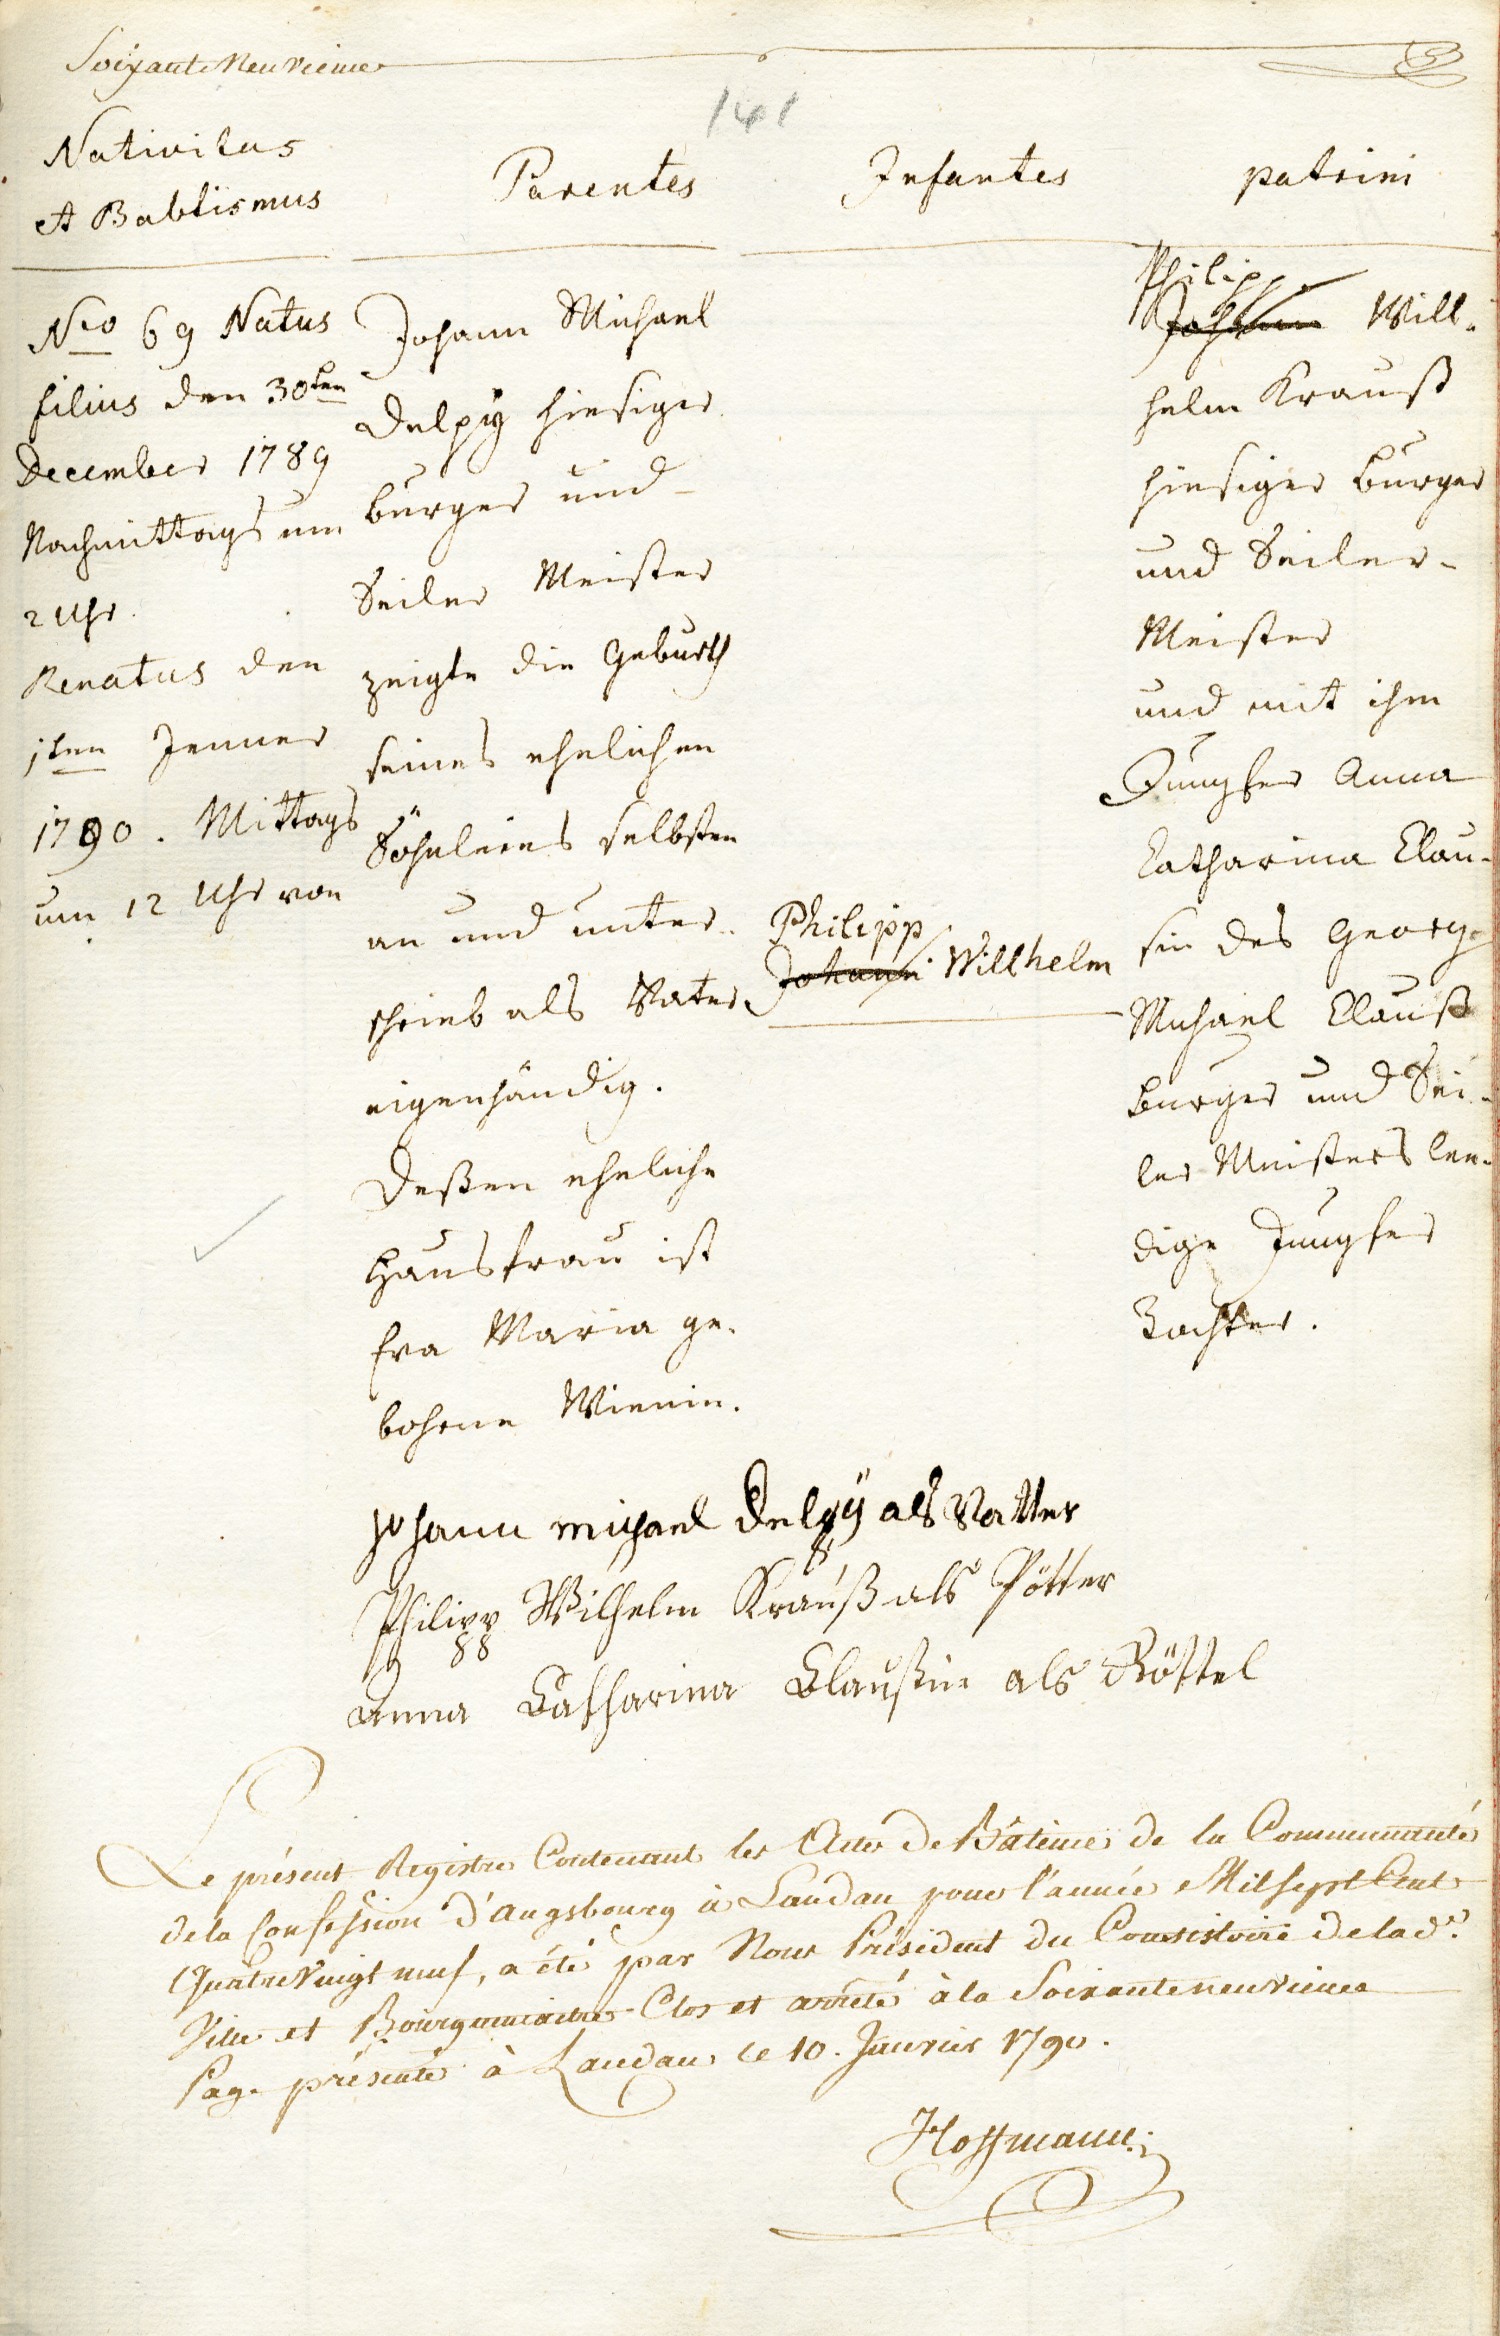 Soixante Neuvieme
141
Nativitas
et Babtismus
Parentes
Infantes
patrini
Nro 69 Natus
filius den 30ten
December 1789
Nachmittags um
2 Uhr.
Renatus den
1ten Jenner
1790. Mittags
um 12 Uhr von
Johann Michael
Delpÿ hiesiger
burger und
Seiler Meister
zeigte die Geburth
seines ehelichen
Söhnleins selbsten
an und unter-
schrieb als Vater
eigenhändig.
Deßen eheliche
Hausfrau ist
Eva Maria ge-
bohrne Wienin.
Philipp
Johann Willhelm
Philipp
Johann Will-
helm Krauß
hiesiger burger
und Seiler-
Meister
und mit ihm
Jungfer Anna
Catharina Clau-
sin des Georg
Michael Clauß
burger und Sei-
ler Meisters lee-
dige Jungfer
Tochter.
Johann michael Delpÿ als Vatter
Philipp Wilhelm Krauß als Pötter
Anna Catharina Claußin als Göttel
Le présent Registre Contenant les Actes De Bâteme de la Communauté
de la Confession d'augsbourg à Landau pour l'année Mil sept Cent
Quatre Vingt neuf, a été par Nous Président du Consistoire de lad.
Ville et Bourguemaitre Clos et arrêté à la Soixante neuvieme
Page présenté à Landau le 10. Janvier 1790.
Hoffmann.